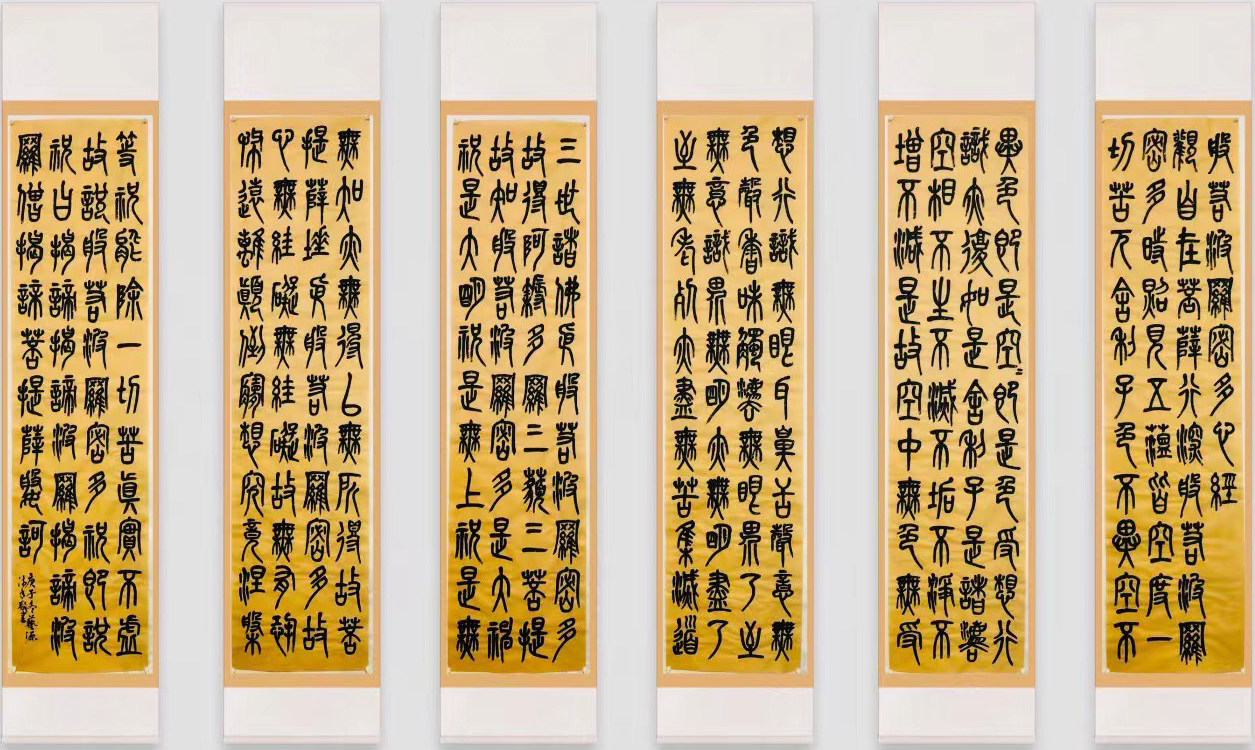 般若波羅密多心經
觀自在菩薩行深般若波羅
密多時照見五蘊皆空度一
切苦厄舍利子色不異空不
異色即是空〻即是色受想行
識亦復如是舍利子是諸灋
空相不生不滅不垢不淨不
增不減是故空中無色無受
想行識無眼耳鼻舌聲意無
色聲香味觸灋無眼界乃至
無意識界無明亦無明盡乃
至無老死亦盡無苦集滅道
三世諸佛依般若波羅密多
故得阿耨多羅三藐三菩提
故知般若波羅密多是大神
祝是大明祝是無上祝是無
無知亦無得以無所得故菩
提薩埵依般若波羅密多故
心無絓礙無絓礙故無有恐
怖遠離顛倒夢想究竟涅槃
等祝能除一切苦真實不虛
故說般若波羅密多祝即說
祝曰揭諦揭諦波羅揭諦波
羅僧揭諦菩提薩婆訶
庚子冬